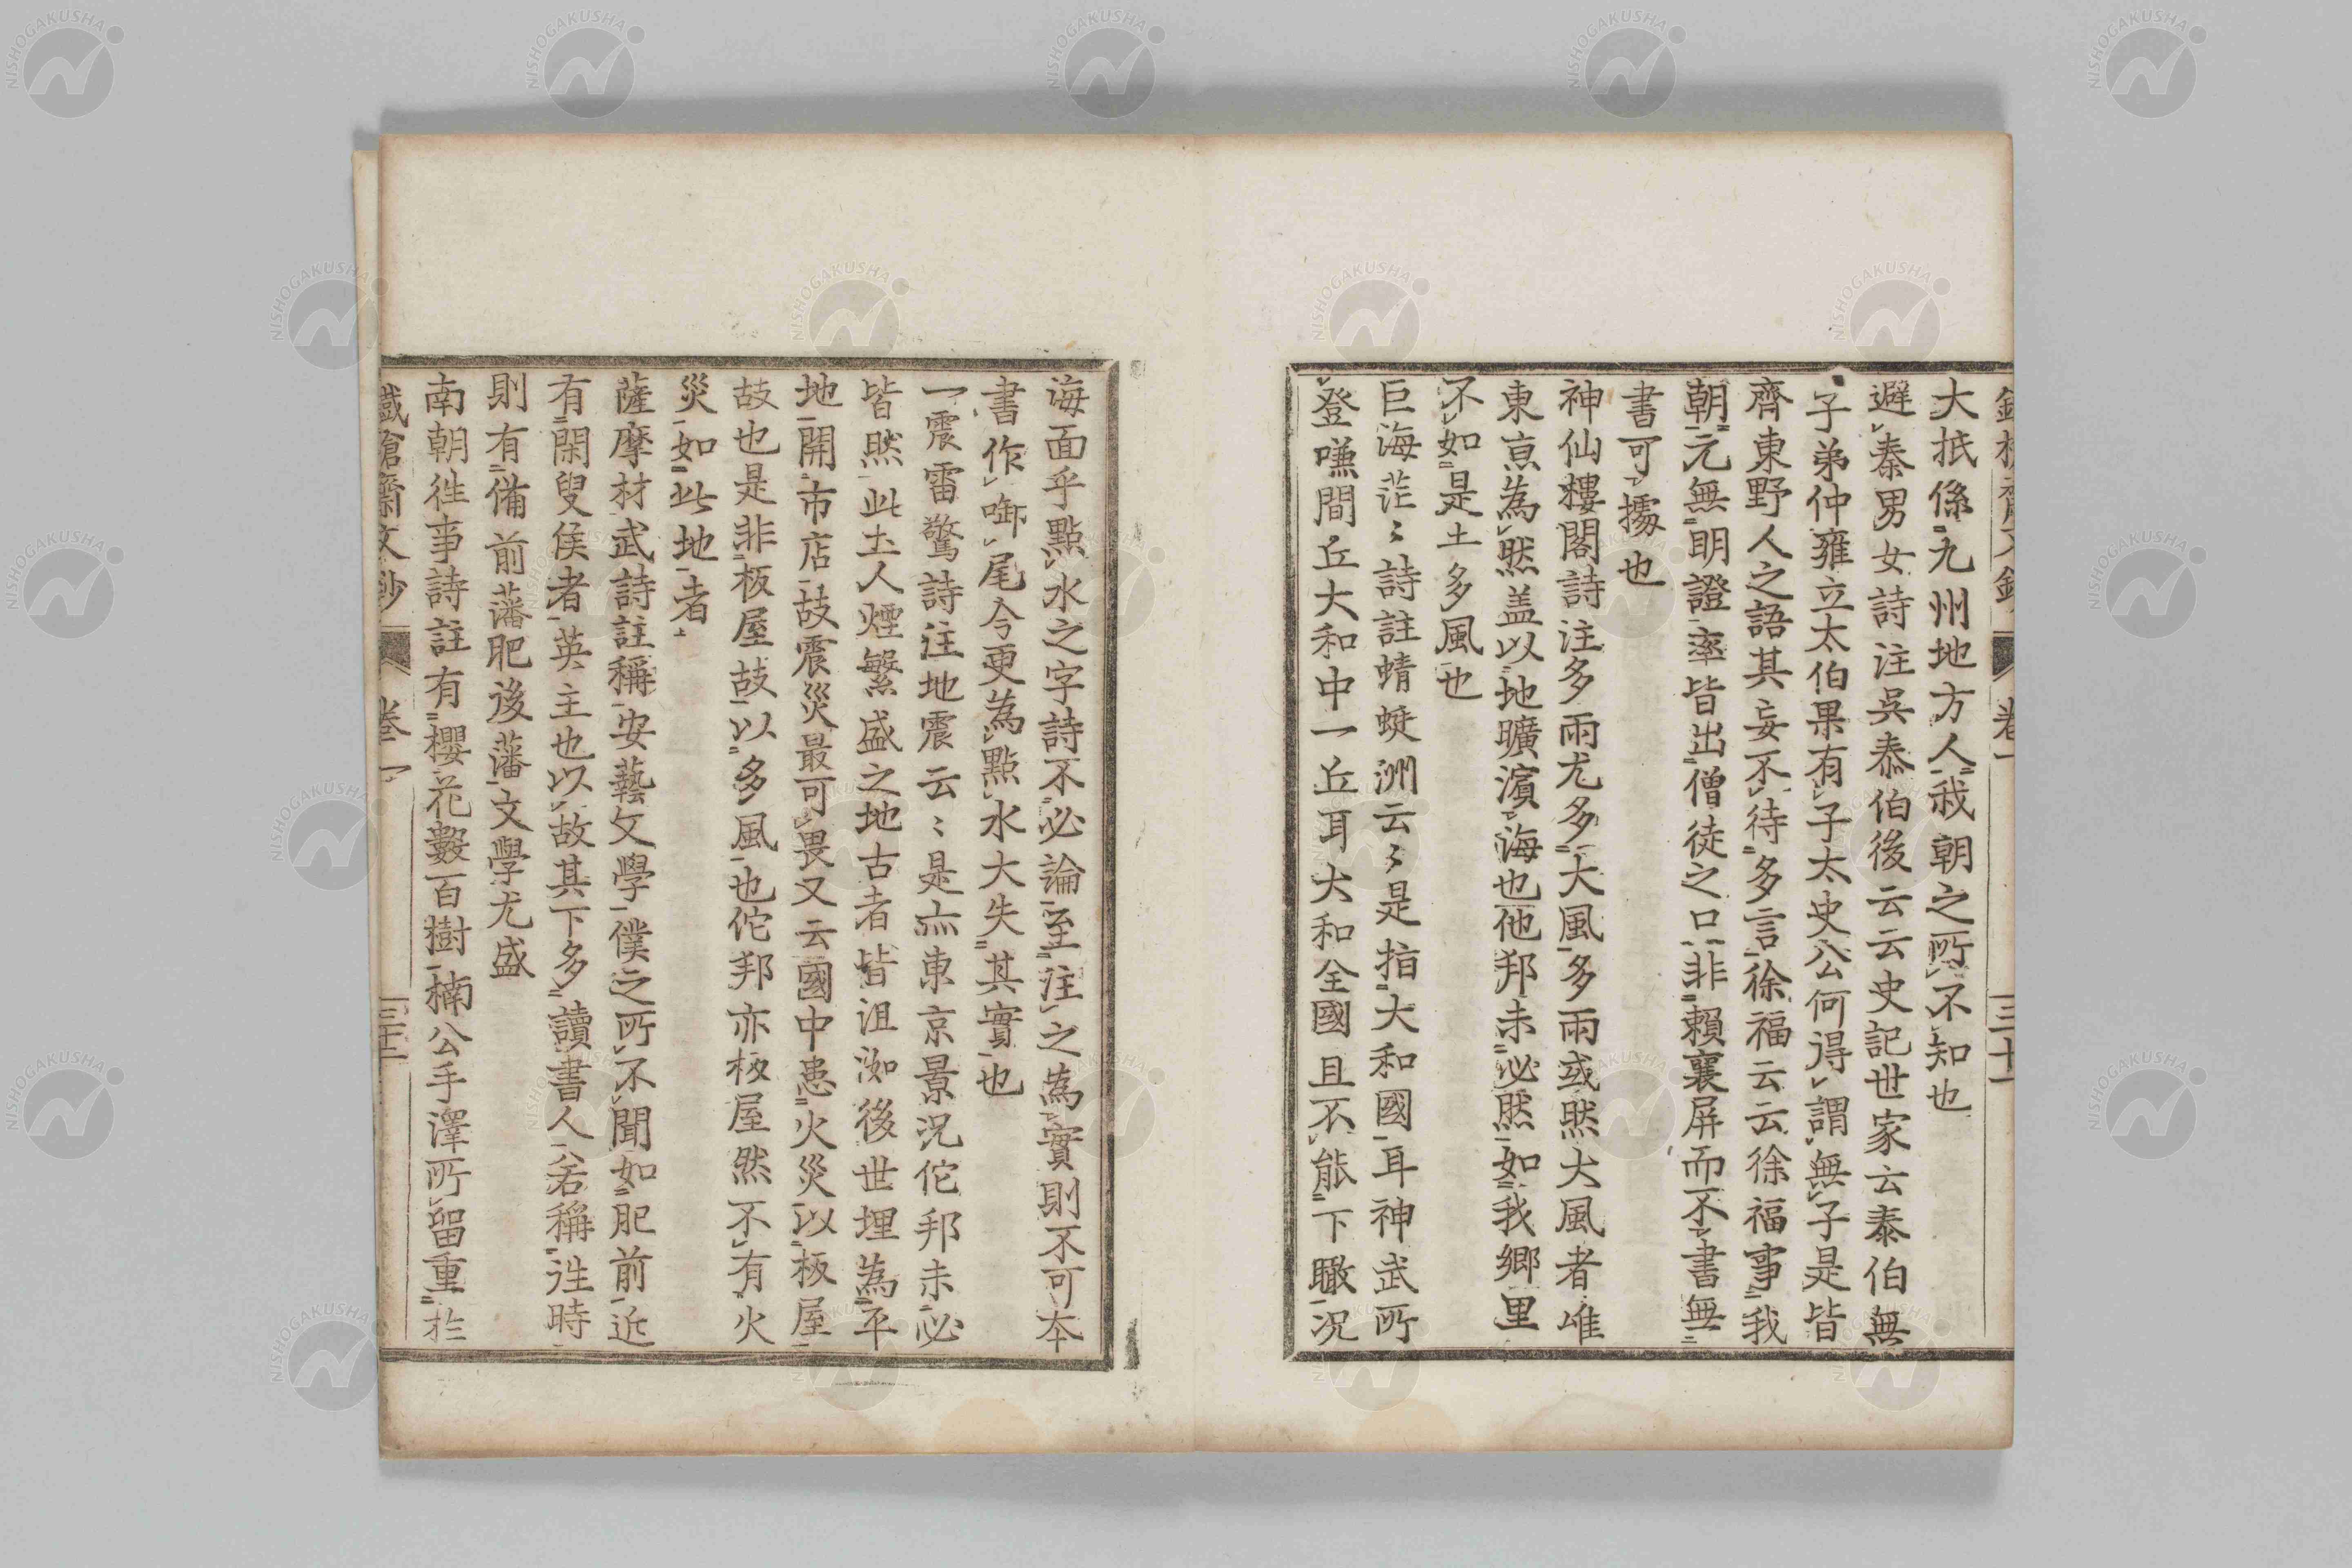 大抵係九州地方人我朝之所不知也
避秦男女詩注吳泰伯後云云史記世家云泰伯無
子弟仲雍立太伯果有子太史公何得謂無子是皆
齊東野人之語其妄不待多言徐福云云徐福事我
朝元無明證率皆出僧徒之口非賴襄屏而不書無
書可據也
神仙樓閣詩注多雨尤多大風多雨或然大風者唯
東京為然盖以地曠濵海也他邦未必然如我鄉里
不如是土多風也
巨海茫〻詩註蜻蜓洲云〻是指大和國耳神武所
登嗛間丘大和中一丘耳大和全國且不能下瞰况
海面乎點水之字詩不必論至注之為實則不可本
書作啣尾今更為點水大失其實也
一震雷驚詩注地震云〻是亦東京景況佗邦未必
皆然此土人煙繁盛之地古者皆沮洳後世埋為平
地開市店故震災最可畏又云國中患火災以板屋
故也是非板屋故以多風也佗邦亦板屋然不有火
災如此地者
薩摩材武詩註稱安藝文學僕之所不聞如肥前近
有閑叟侯者英主也以故其下多讀書人公若稱往時
則有備前藩肥後藩文學尤盛
南朝往事詩註有櫻花數百樹楠公手澤所留重於
鐵槍齋文鈔 卷一
NISHOGAKUSHA